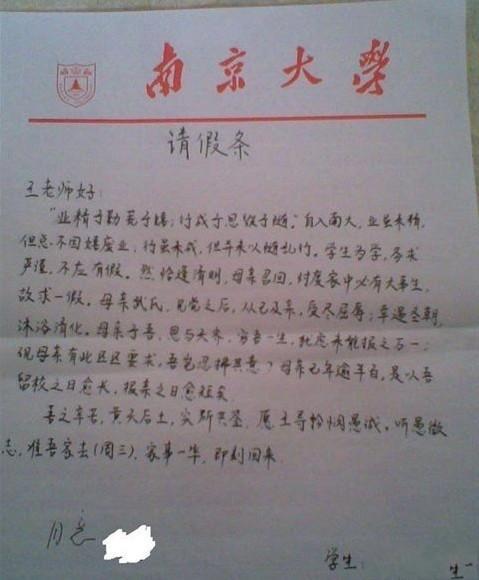 南京大学
请假条
王老师好：
“业精于勤荒于嬉；行成于思毁于随。”自入南大，业虽未精，
但志不因嬉废业；行虽未成，但并未以随乱行。学生为学，务求
严谨，不应有假。然恰逢清明，母亲召回，忖度家中必有大事生，
故求一假。母亲氏，见党之后，从己及亲，受尽屈辱；幸遇圣朝，
沐浴清化。母亲于吾，恩与天齐，穷吾一生，犹恐未能报之万一；
现母亲有此区区要求，吾岂忍拂其意？母亲已年逾半百，是以吾
留校之日愈长，报亲之日愈短矣
吾之辛苦，黄天后土，实所共鉴，愿主导矜悯愚诚，听愚微
志，准吾家去(周三)，家事一毕，即刻回来
同意
学生：